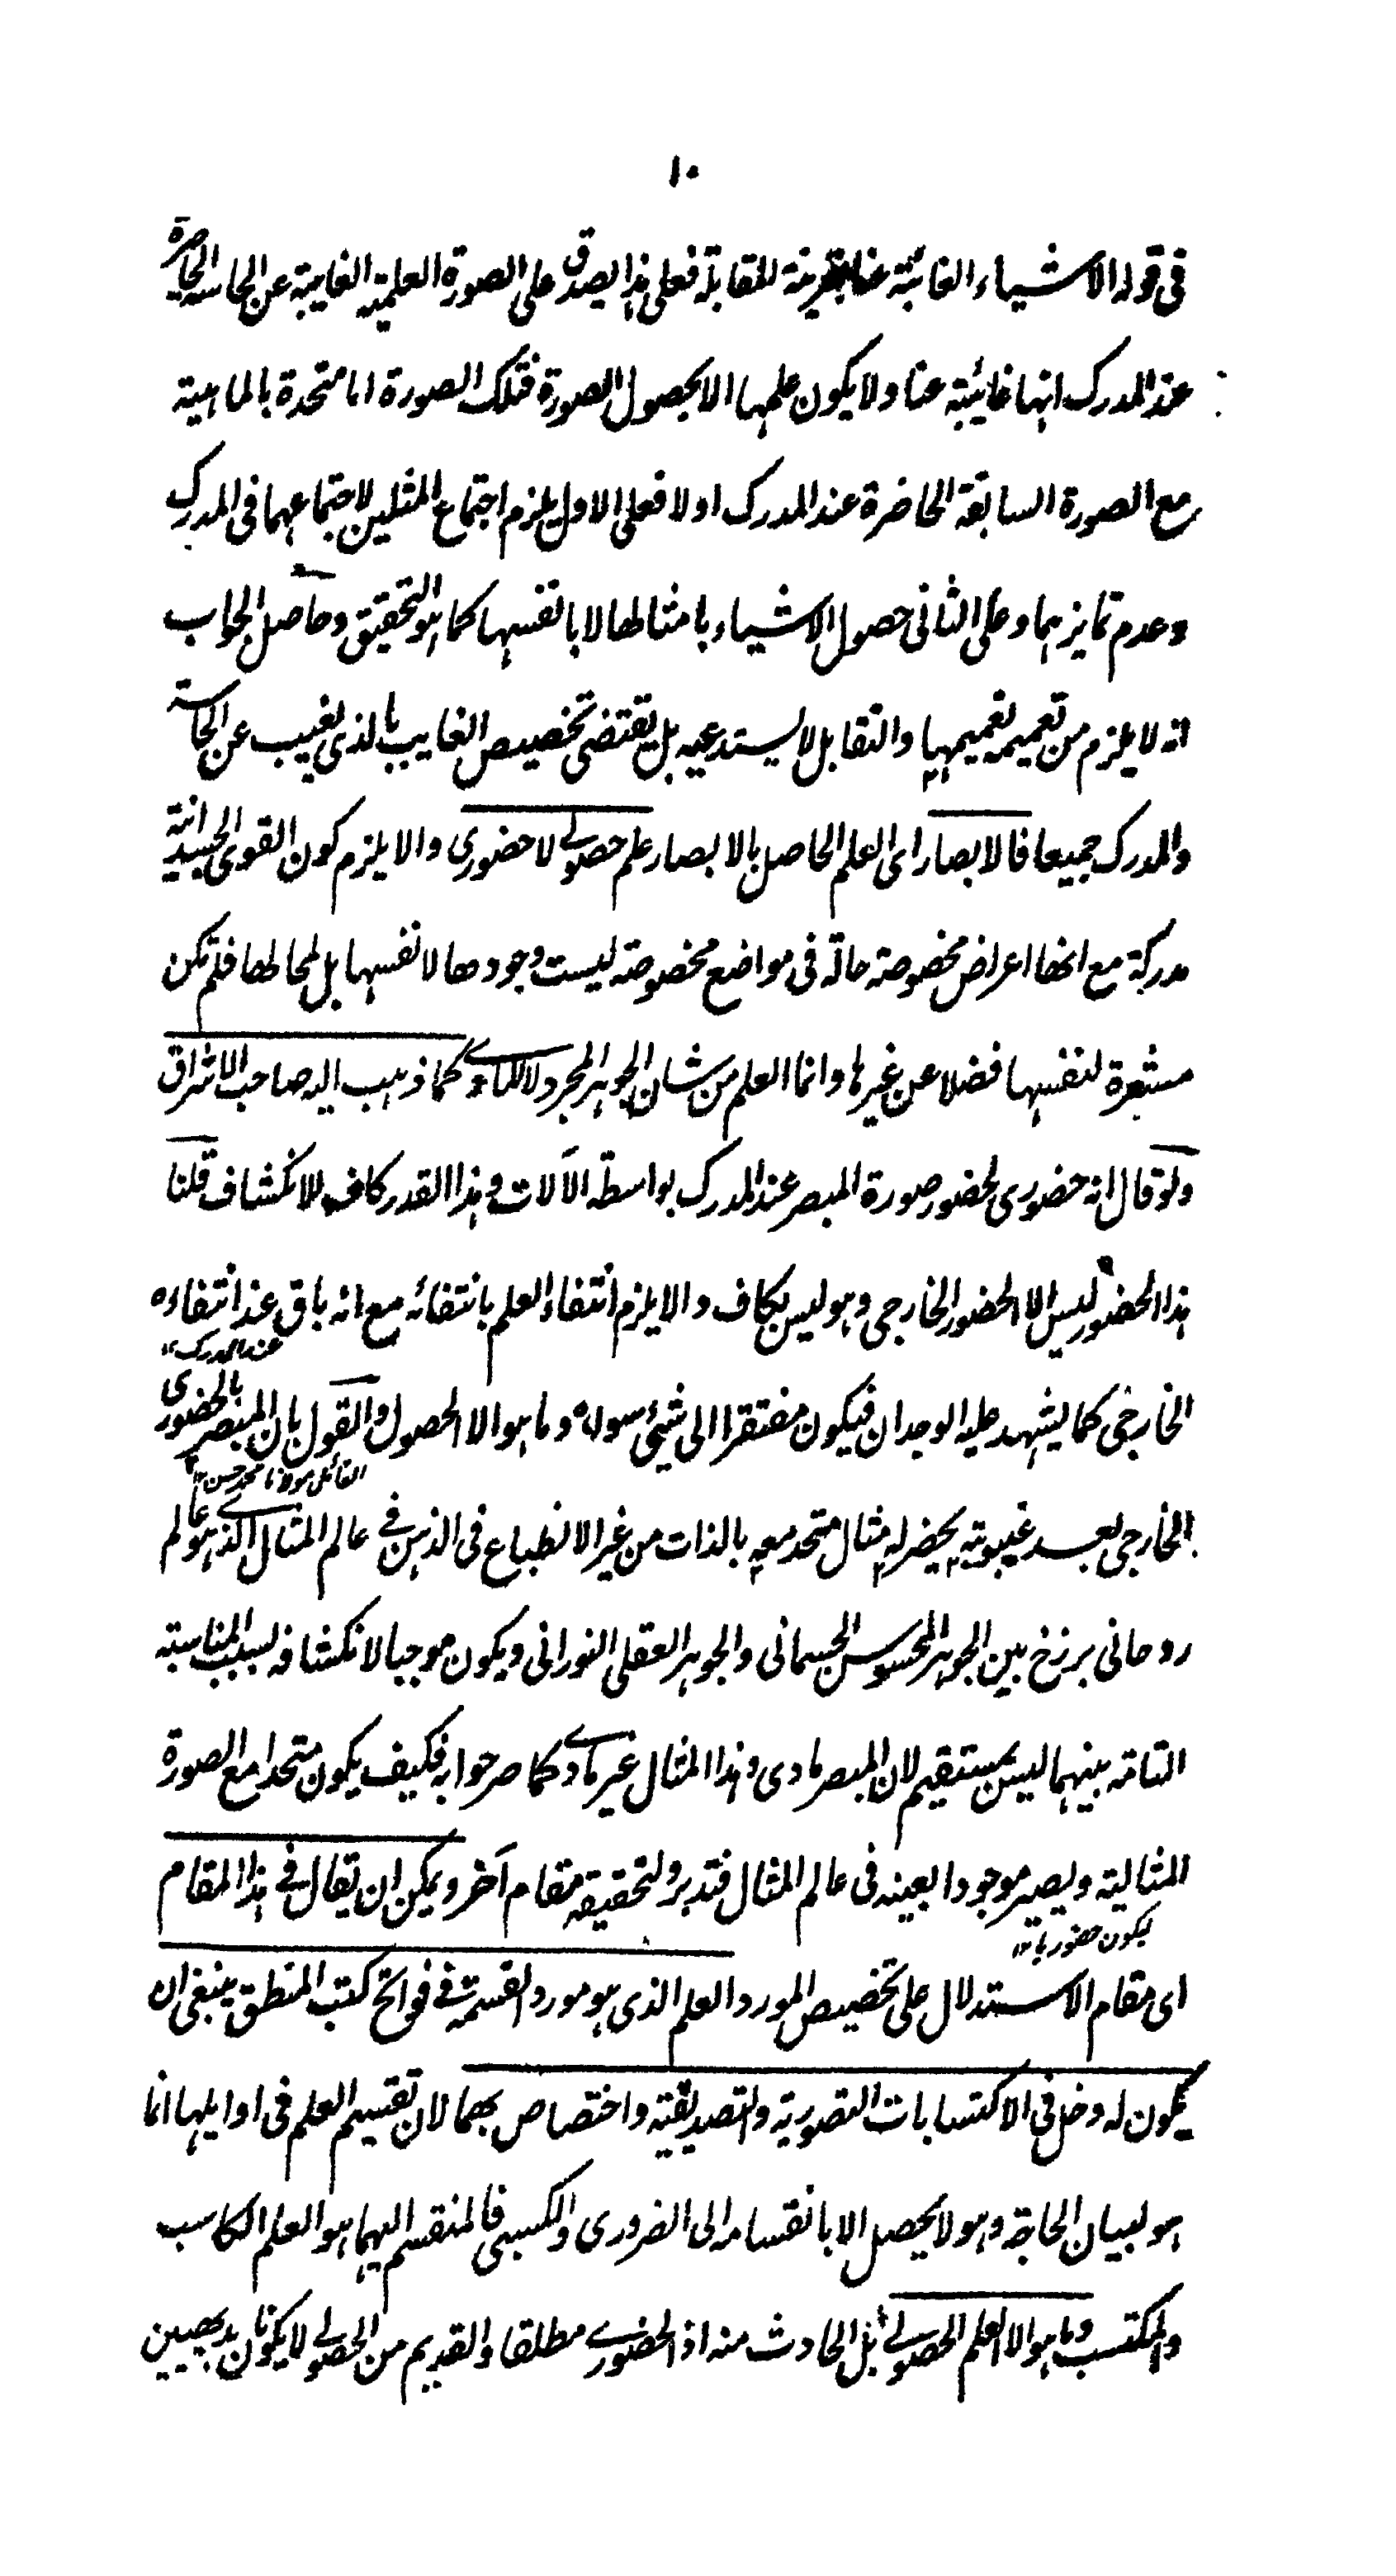 ١٠
فى قوله الاشياء الغائبة عنا بقرينة المقابلة فعلى هذا يصدق على الصورة العلمية الغايبة عن الحاسة الحاضرة
عند المدرك انها غائبة عنا ولا يكون علمها الا بحصول الصورة فتلك الصورة اما متحدة بالماهية
مع الصورة السابقة الحاضرة عند المدرك او لا فعلى الاول يلزم اجتماع المثلين لاجتماعهما فى المدرك
وعدم تمايزهما وعلى الثانى حصول الاشياء بامثالها لا بانفسها كما هو التحقيق وحاصل الجواب
انه لا يلزم من تعميمه تعميمها والتقابل لا يستدعيه بل يقتضى تخصيص الغايب بالذى يغيب عن الحاسة
والمدرك جميعا فالابصار اى العلم الحاصل بالابصار علم حصولے لا حضورى والا يلزم كون القوى الجسدانية
مدركة مع انها اعراض مخصوصة حالة فى مواضع مخصوصة ليست وجودها لانفسها بل لمحالها فلم تكن
مشعرة لنفسها فضلا عن غيرها وانما العلم من شان الجوهر المجرد لا للمادے كما ذهب اليه صاحب الاشراق
ولو قال انه حضورى لحضور صورة المبصر عند المدرك بواسطة الآلات وهذا القدر كاف للانكشاف قلنا
هذا الحضور ليس الا الحضور الخارجى وهو ليس بكاف والا يلزم انتفاء العلم بانتفائه مع انه باق عند انتفاءه
عند المدرك ١٢
الخارجى كما يشهد عليه الوجدان فيكون مفتقرا الى شئ سواه وما هو الا الحصول والقول بان المبصر بالحضورى
القائل مولانا محمد حسن ١٢
الخارجى بعد غيبوبته يحضر له مثال متحد معه بالذات من غير الانطباع فى الذهن فے عالم المثال الذے هو عالم
روحانى برزخ بين الجوهر المحسوس الجسمانى والجوهر العقلى النورانى ويكون موجبا لانكشافه بسبب المناسبته
التامة بينهما ليس بمستقيم لان المبصر مادى وهذا المثال غير مادے كما صرحوا به فكيف يكون متحدا مع الصورة
المثالية ويصير موجودا بعينه فى عالم المثال فتدبر ولتحقيقه مقام آخر ويمكن ان يقال فے هذا المقام
ليكون حضوريا ١٢
اى مقام الاستدلال على تخصيص المورد العلم الذى هو مورد القسمة فے فواتح كتب المنطق ينبغى ان
يكون له دخل فى الاكتسابات التصورية والتصديقية واختصاص بهما لان تقسيم العلم فى اوايلها انما
هو لبيان الحاجة وهو لا يحصل الا بانقسامه الى الضرورى والكسبى فالمنقسم اليهما هو العلم الكاسب
والمكتسب وما هو الا العلم الحصولے بل الحادث منه اذ الحضورے مطلقا والقديم من الحصولے لا يكونا بديهيين